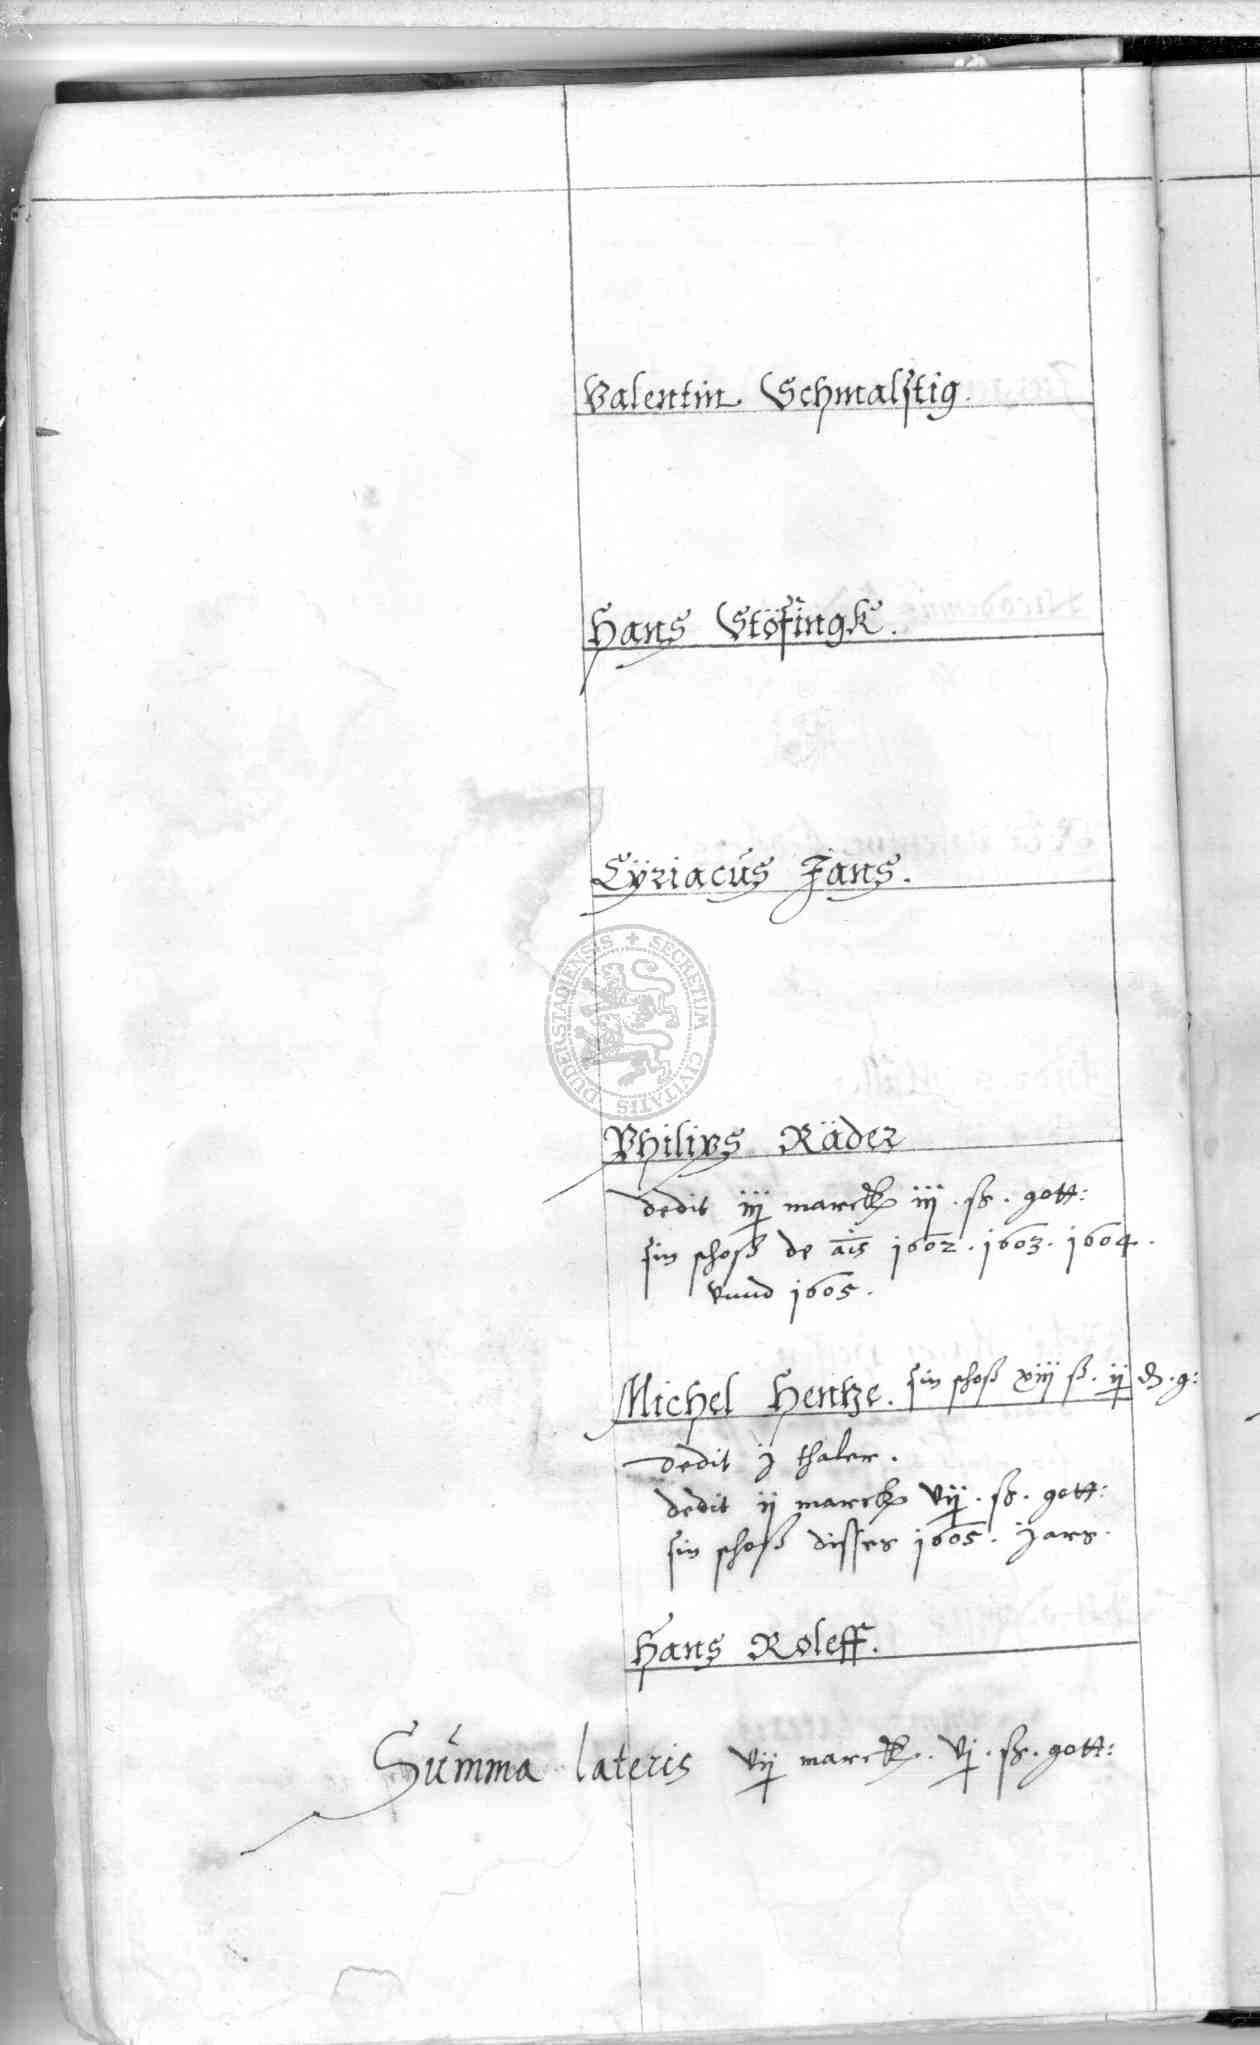 Valentin Schmalstig.
Hans Stöfingk.
Cÿriacus Jans.
SECRETUM CIVITATIS DUDERSTADIENSIS
Philips Räder
dedit iij marck iij. ß. gott:
sin schoß de ais 1602. 1603. 1604.
vnnd 1605.
Michel Hentze. sin schoß xiij ß. ij d. g:
dedit j thaler.
dedit ij marck vij. ß. gott:
sin schoß disses 1605. Jars.
Hans Roleff.
Summa lateris vij marck. vj. ß. gott: